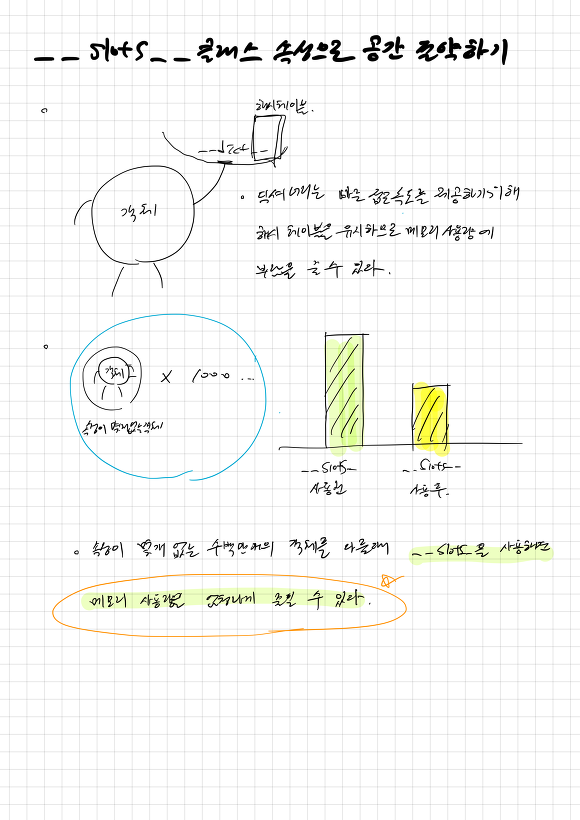 __slots__ 클래스 속성으로 공간 절약하기
해시테이블.
__dict__
객체
딕셔너리는 빠른 접근속도를 제공하기위해
해시 테이블을 유지하므로 메모리 사용량에
부담을 줄 수 있다.
객체 X 1000 ...
속성이 몇개없는객체
__slots__
사용전
__slots__
사용후.
속성이 몇개 없는 수백만개의 객체를 다룰때 __slots__을 사용하면
메모리 사용량을 엄청나게 줄일 수 있다.